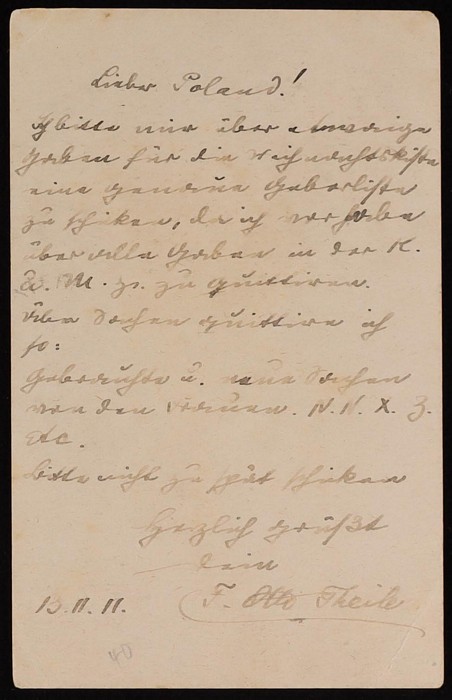 Lieber Poland!
Ich bitte mir über etwaige
Gaben für die Weihnachtskiste
eine genaue Geberliste
zu schiken, da ich vorhabe
über alle Gaben in der K.
W. M. Z. zu quittiren.
Über Sachen quittire ich
so:
Gebrauchte u. neue Sachen
von den Frauen. N. N. X. Z.
etc.
Bitte nicht zu spät schiken
Herzlich grüßt
Dein
F. Otto Theile
13.11.11.
40